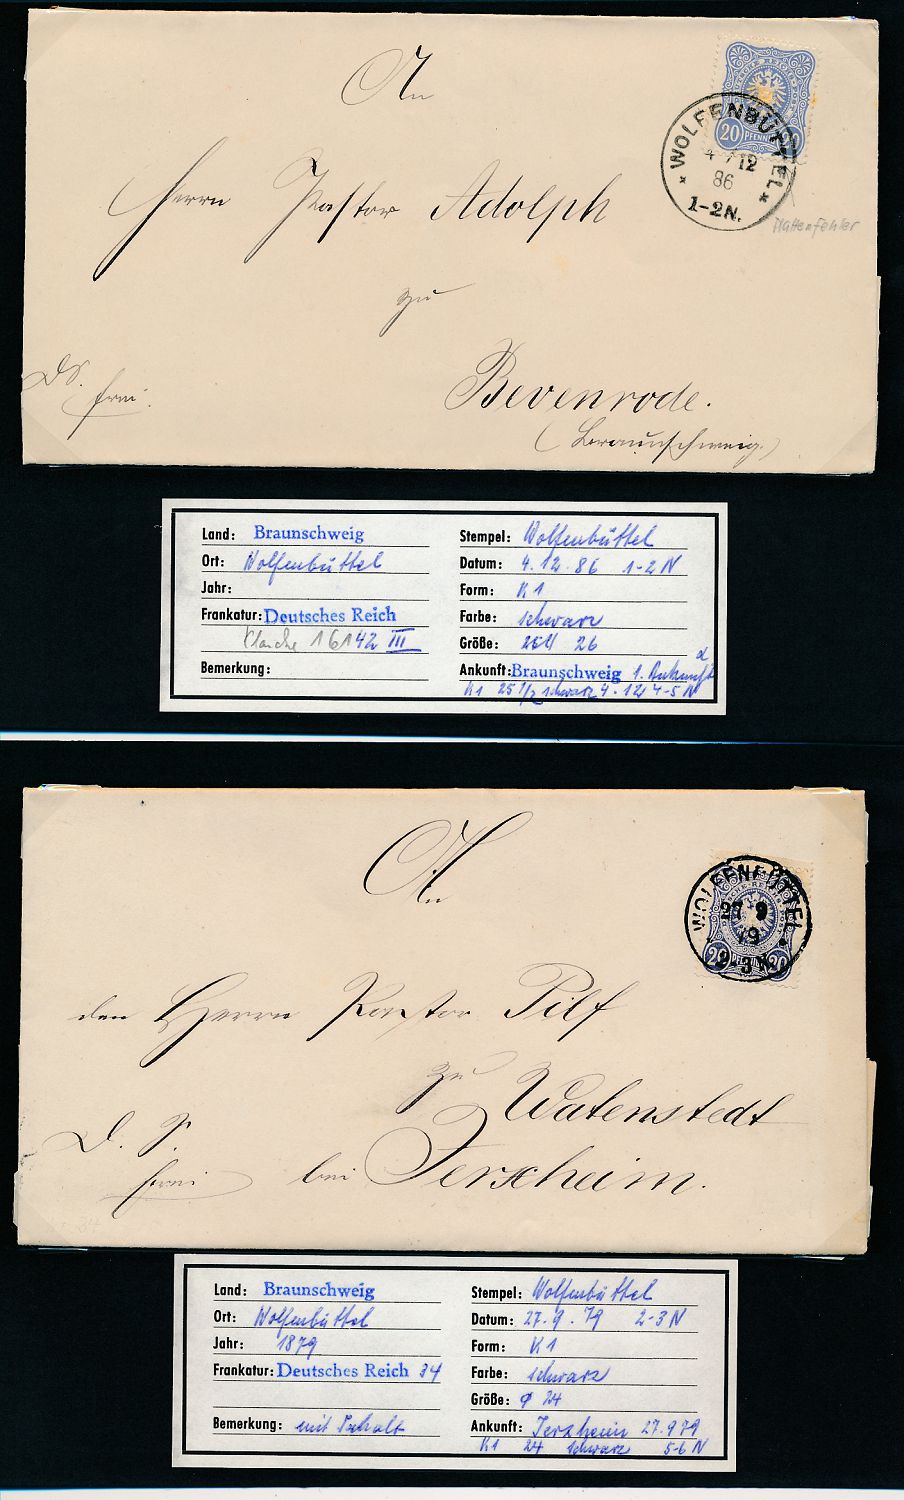 An
DEUTSCHE REICHS-POST
20 PFENNIG 20
* WOLFENBÜTTEL *
4 / 12
86
1-2N.
Plattenfehler
Herrn Pastor Adolph
zu
Bevenrode.
(Braunschweig.)
DS.
frei.
Land: Braunschweig
Ort: Wolfenbüttel
Jahr:
Frankatur: Deutsches Reich
16142 III
Bemerkung:
Stempel: Wolfenbüttel
Datum: 4.12.86 1-2 N
Form: K1
Farbe: schwarz
Größe: 26
Ankunft: Braunschweig 1. Ankunft
K1 25 1/2 schwarz 4.12 4-5 N
An
WOLFENBÜTTEL
27 9
79
2-3 N.
20 PFENNIG 20
den Herrn Pastor Pilf
zu Watenstedt
D. S.
frei
bei Jerxheim.
Land: Braunschweig
Ort: Wolfenbüttel
Jahr: 1879
Frankatur: Deutsches Reich 34
Bemerkung: mit Inhalt
Stempel: Wolfenbüttel
Datum: 27.9.79 2-3 N
Form: K1
Farbe: schwarz
Größe: ϕ 24
Ankunft: Jerxheim 27.9 79
K1 24 schwarz 5-6 N